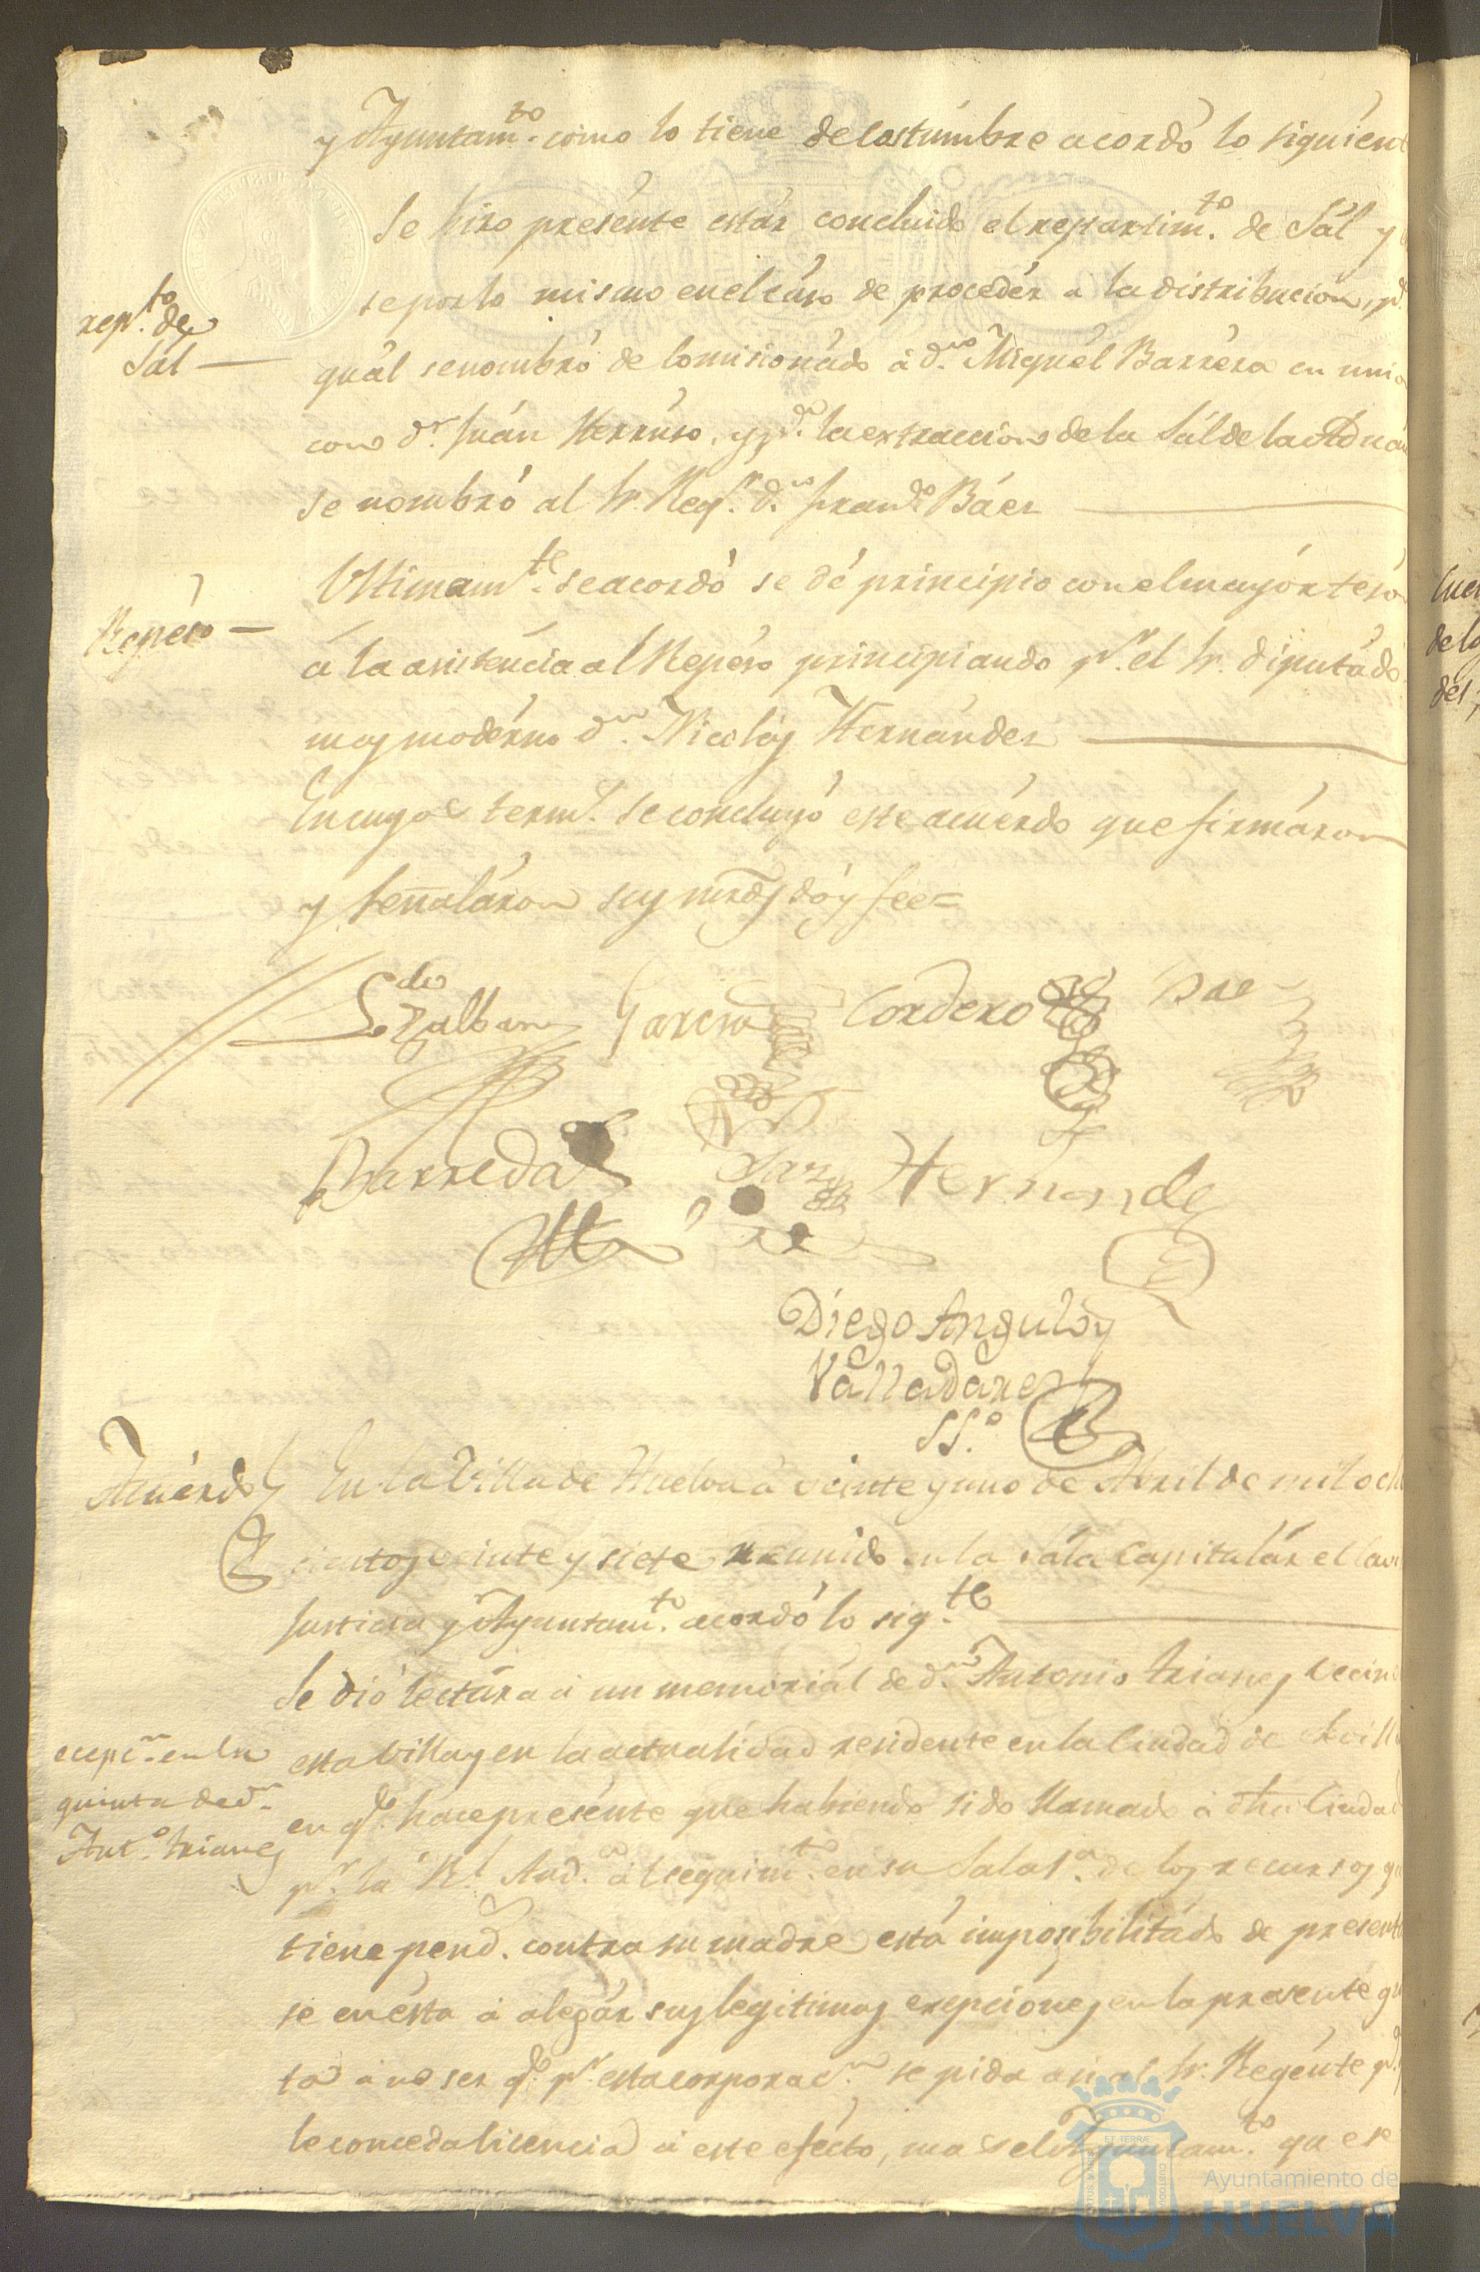 y Ayuntam.to como lo tiene de costúmbre acordó lo siguient
Se hizo presénte estár concluido el repartim.to de Sál y
rep.to de
Sál —
se por lo mismo en el cáso de procedér a la distribucion, p.a
quál se nombró de Comisionádo á d.n Miguél Barréra en unio
con d.n Juán Herrúzo, y p.a la extraccion de la Sál de la Adua
se nombró al Sr. Reg.r d.n Fran.co Báez
Repéso —
Ultimam.te se acordó se dé principio con el mayór tesó
á la asisténcia al Repéso principiando p.r el Sr. diputádo
mas modérno d.n Nicolás Hernández
En cuyos term.s se concluyó este acuérdo que firmáron
y señaláron sus mrds doy fee =
L.do Zalban García Cordero Bae
Barreda Hernande
Diego Angulo y
Valladares
SS.o
Acuérdo
En la Villa de Huelva á veinte y uno de Abril de mil och
cientos veinte y siete reunido en la sála Capitulár el Con
Justicia y Ayuntam.to acordó lo sig.te
Se dió lectúra á un memoriál de d.n Antonio Trianes vecin
ecepc.n en la
quinta de d.n
Ant.o Trianes
esta Villa y en la actualidad residente en la Ciudad de Sevill
en q.e hace presénte que habiendo sido llamado á dha Ciudad
p.r la R.l Aud.a al seguim.to en su Sala 1.a de los recursos q
tiene pend. contra su madre está imposibilitádo de present
se en ésta á alegár sus legitimas exepciónes en la presente qu
ta á no ser q.e p.r esta corporac.n se pida así al Sr. Regénte p.a
le conceda licencia á este efécto, ma el Ayuntam.to que se
Cuen
de lo
del
Ayuntamiento de
HUELVA